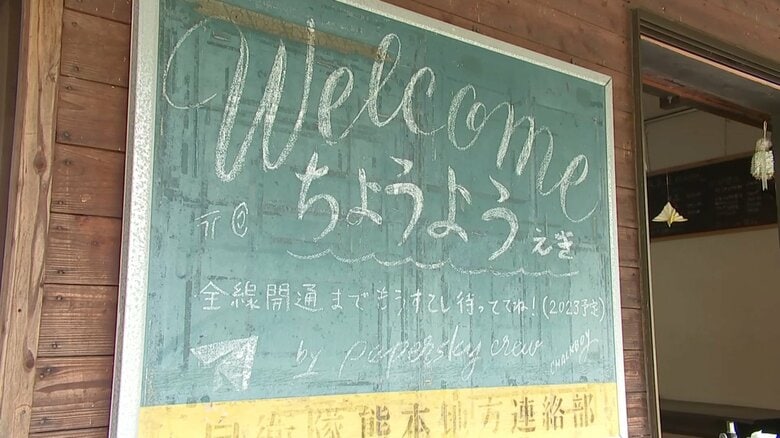 Welcome
ちょうよう えき
全線開通までもうすこし待っててね！(2023予定)
by papersky crew
CHALKBOY
自衛隊熊本地方連絡部